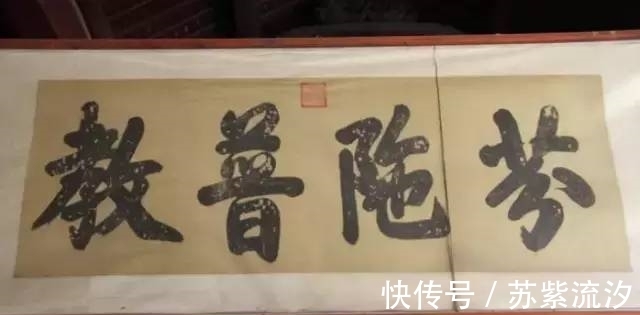 芬陁普教
快传号 / 苏紫流汐